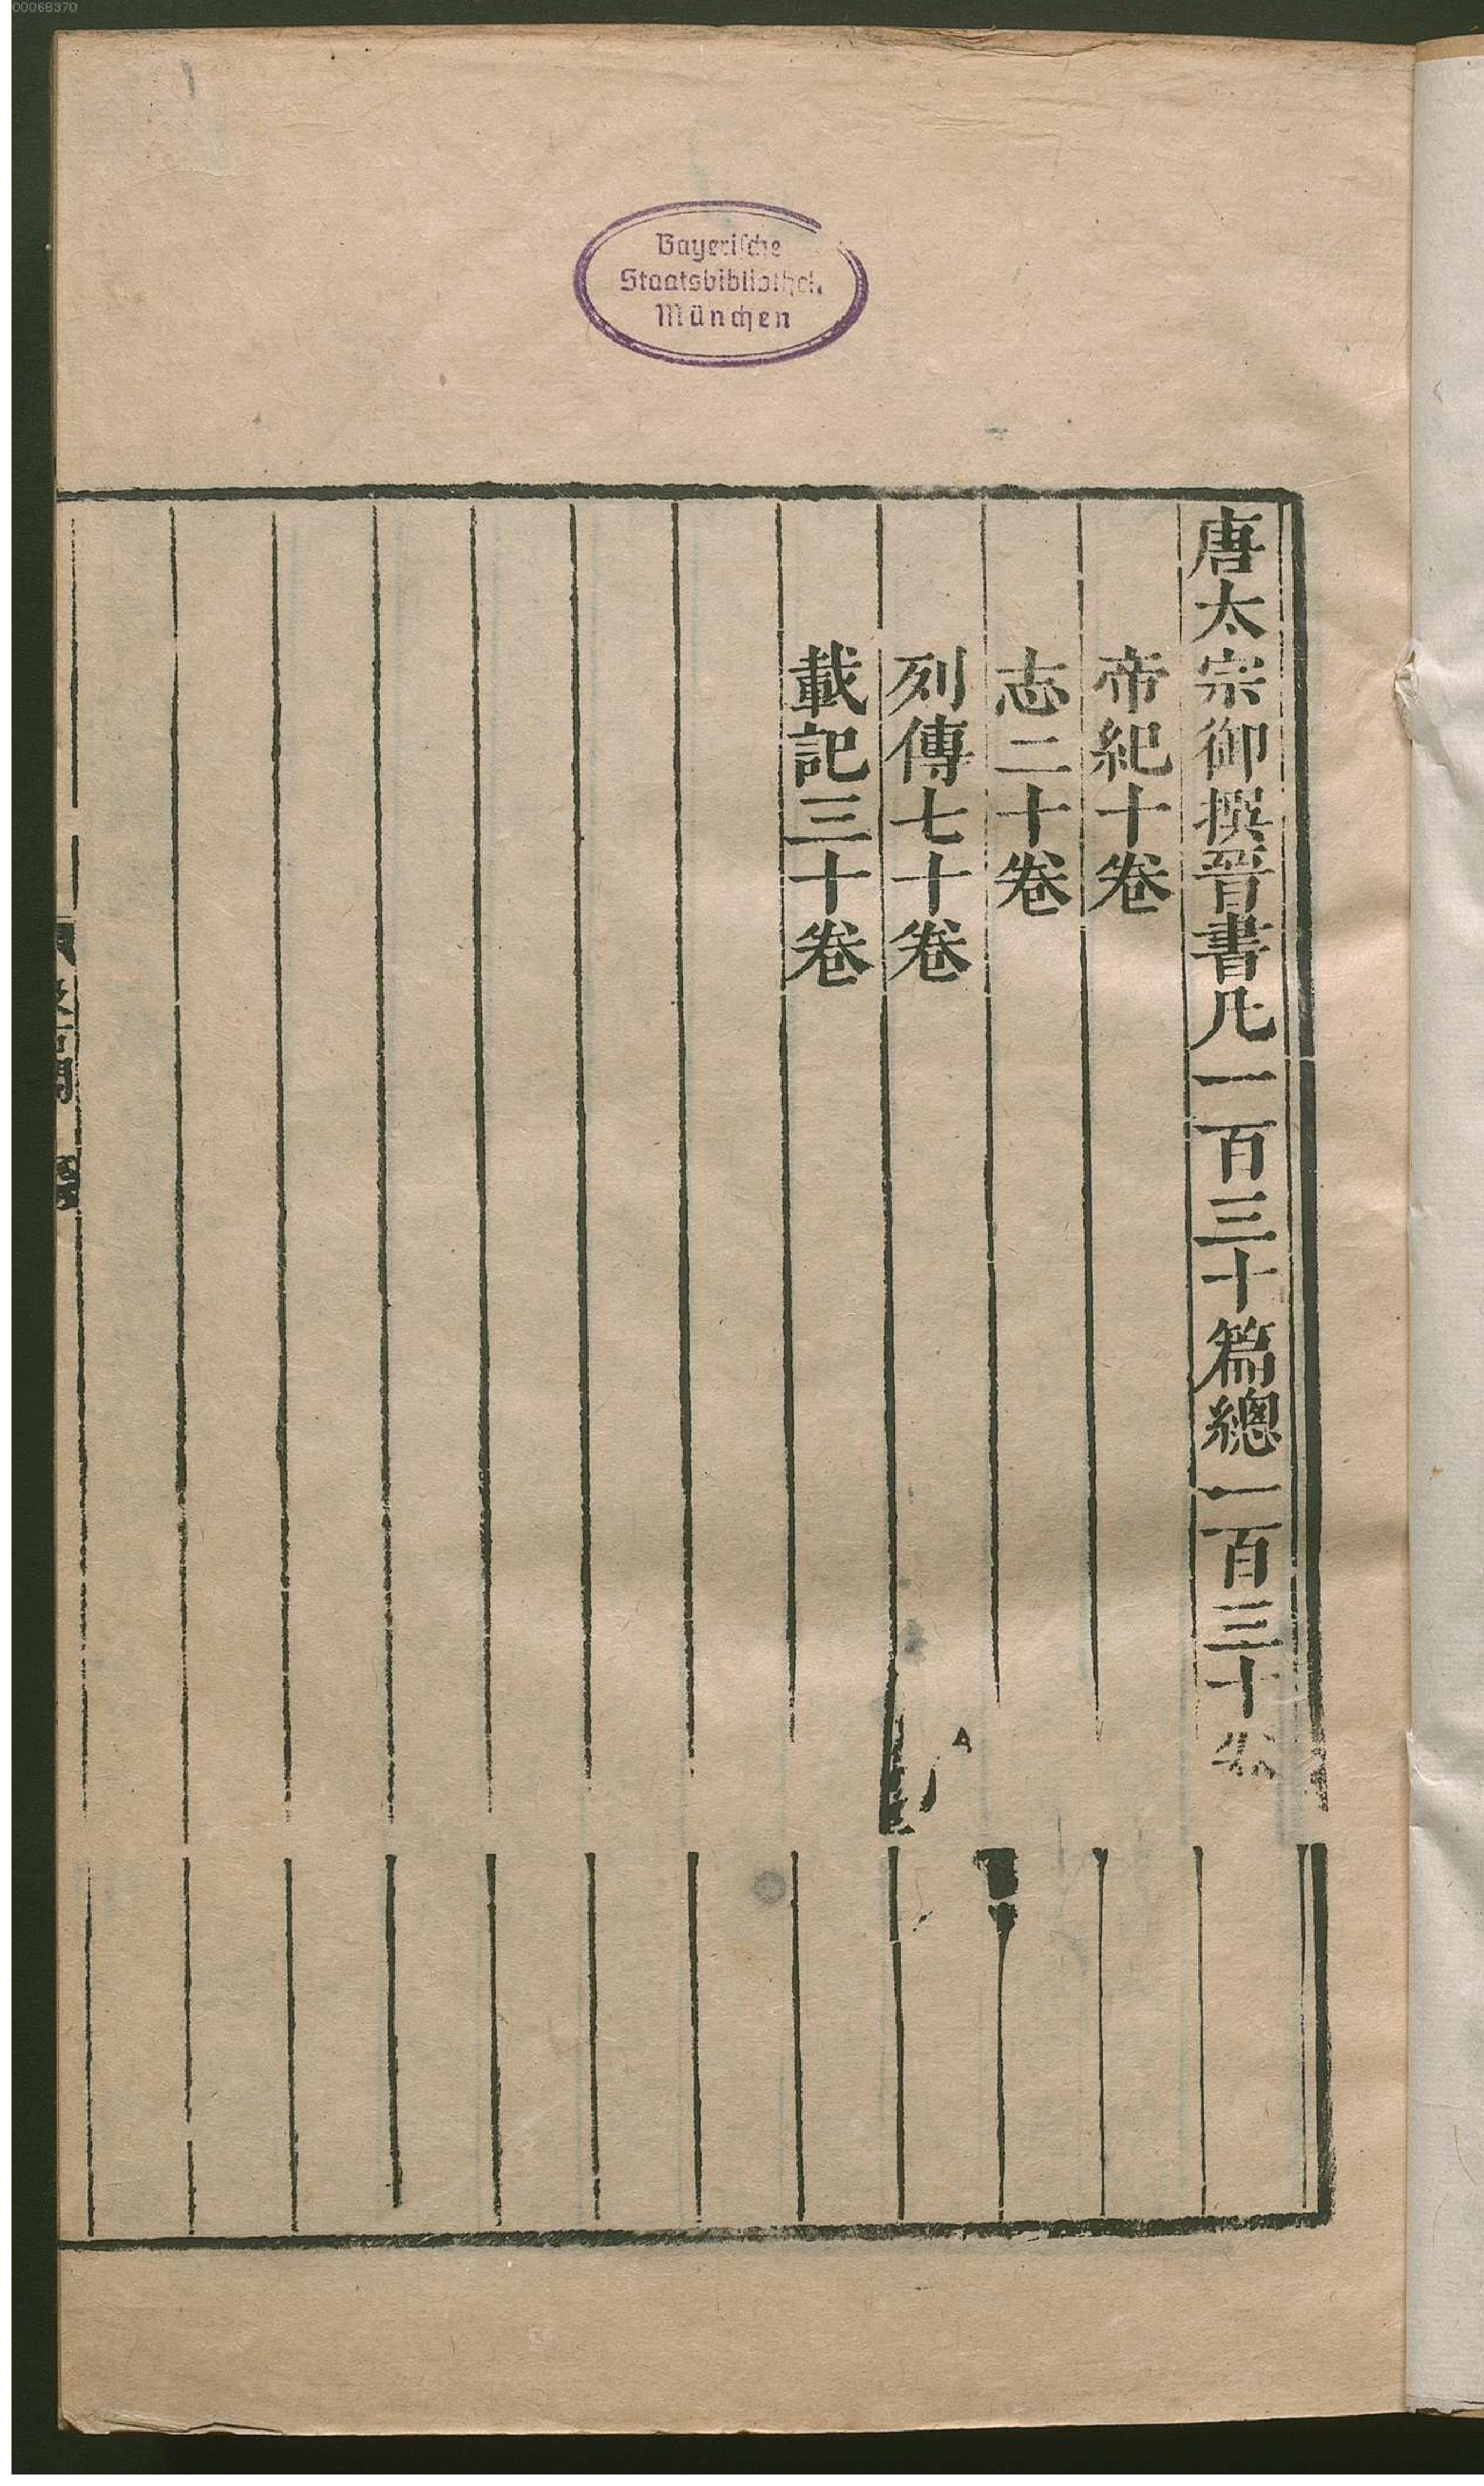 00068370
Bayerische
Staatsbibliothek
München
唐太宗御撰晉書凡一百三十篇總一百三十卷
帝紀十卷
志二十卷
列傳七十卷
載記三十卷